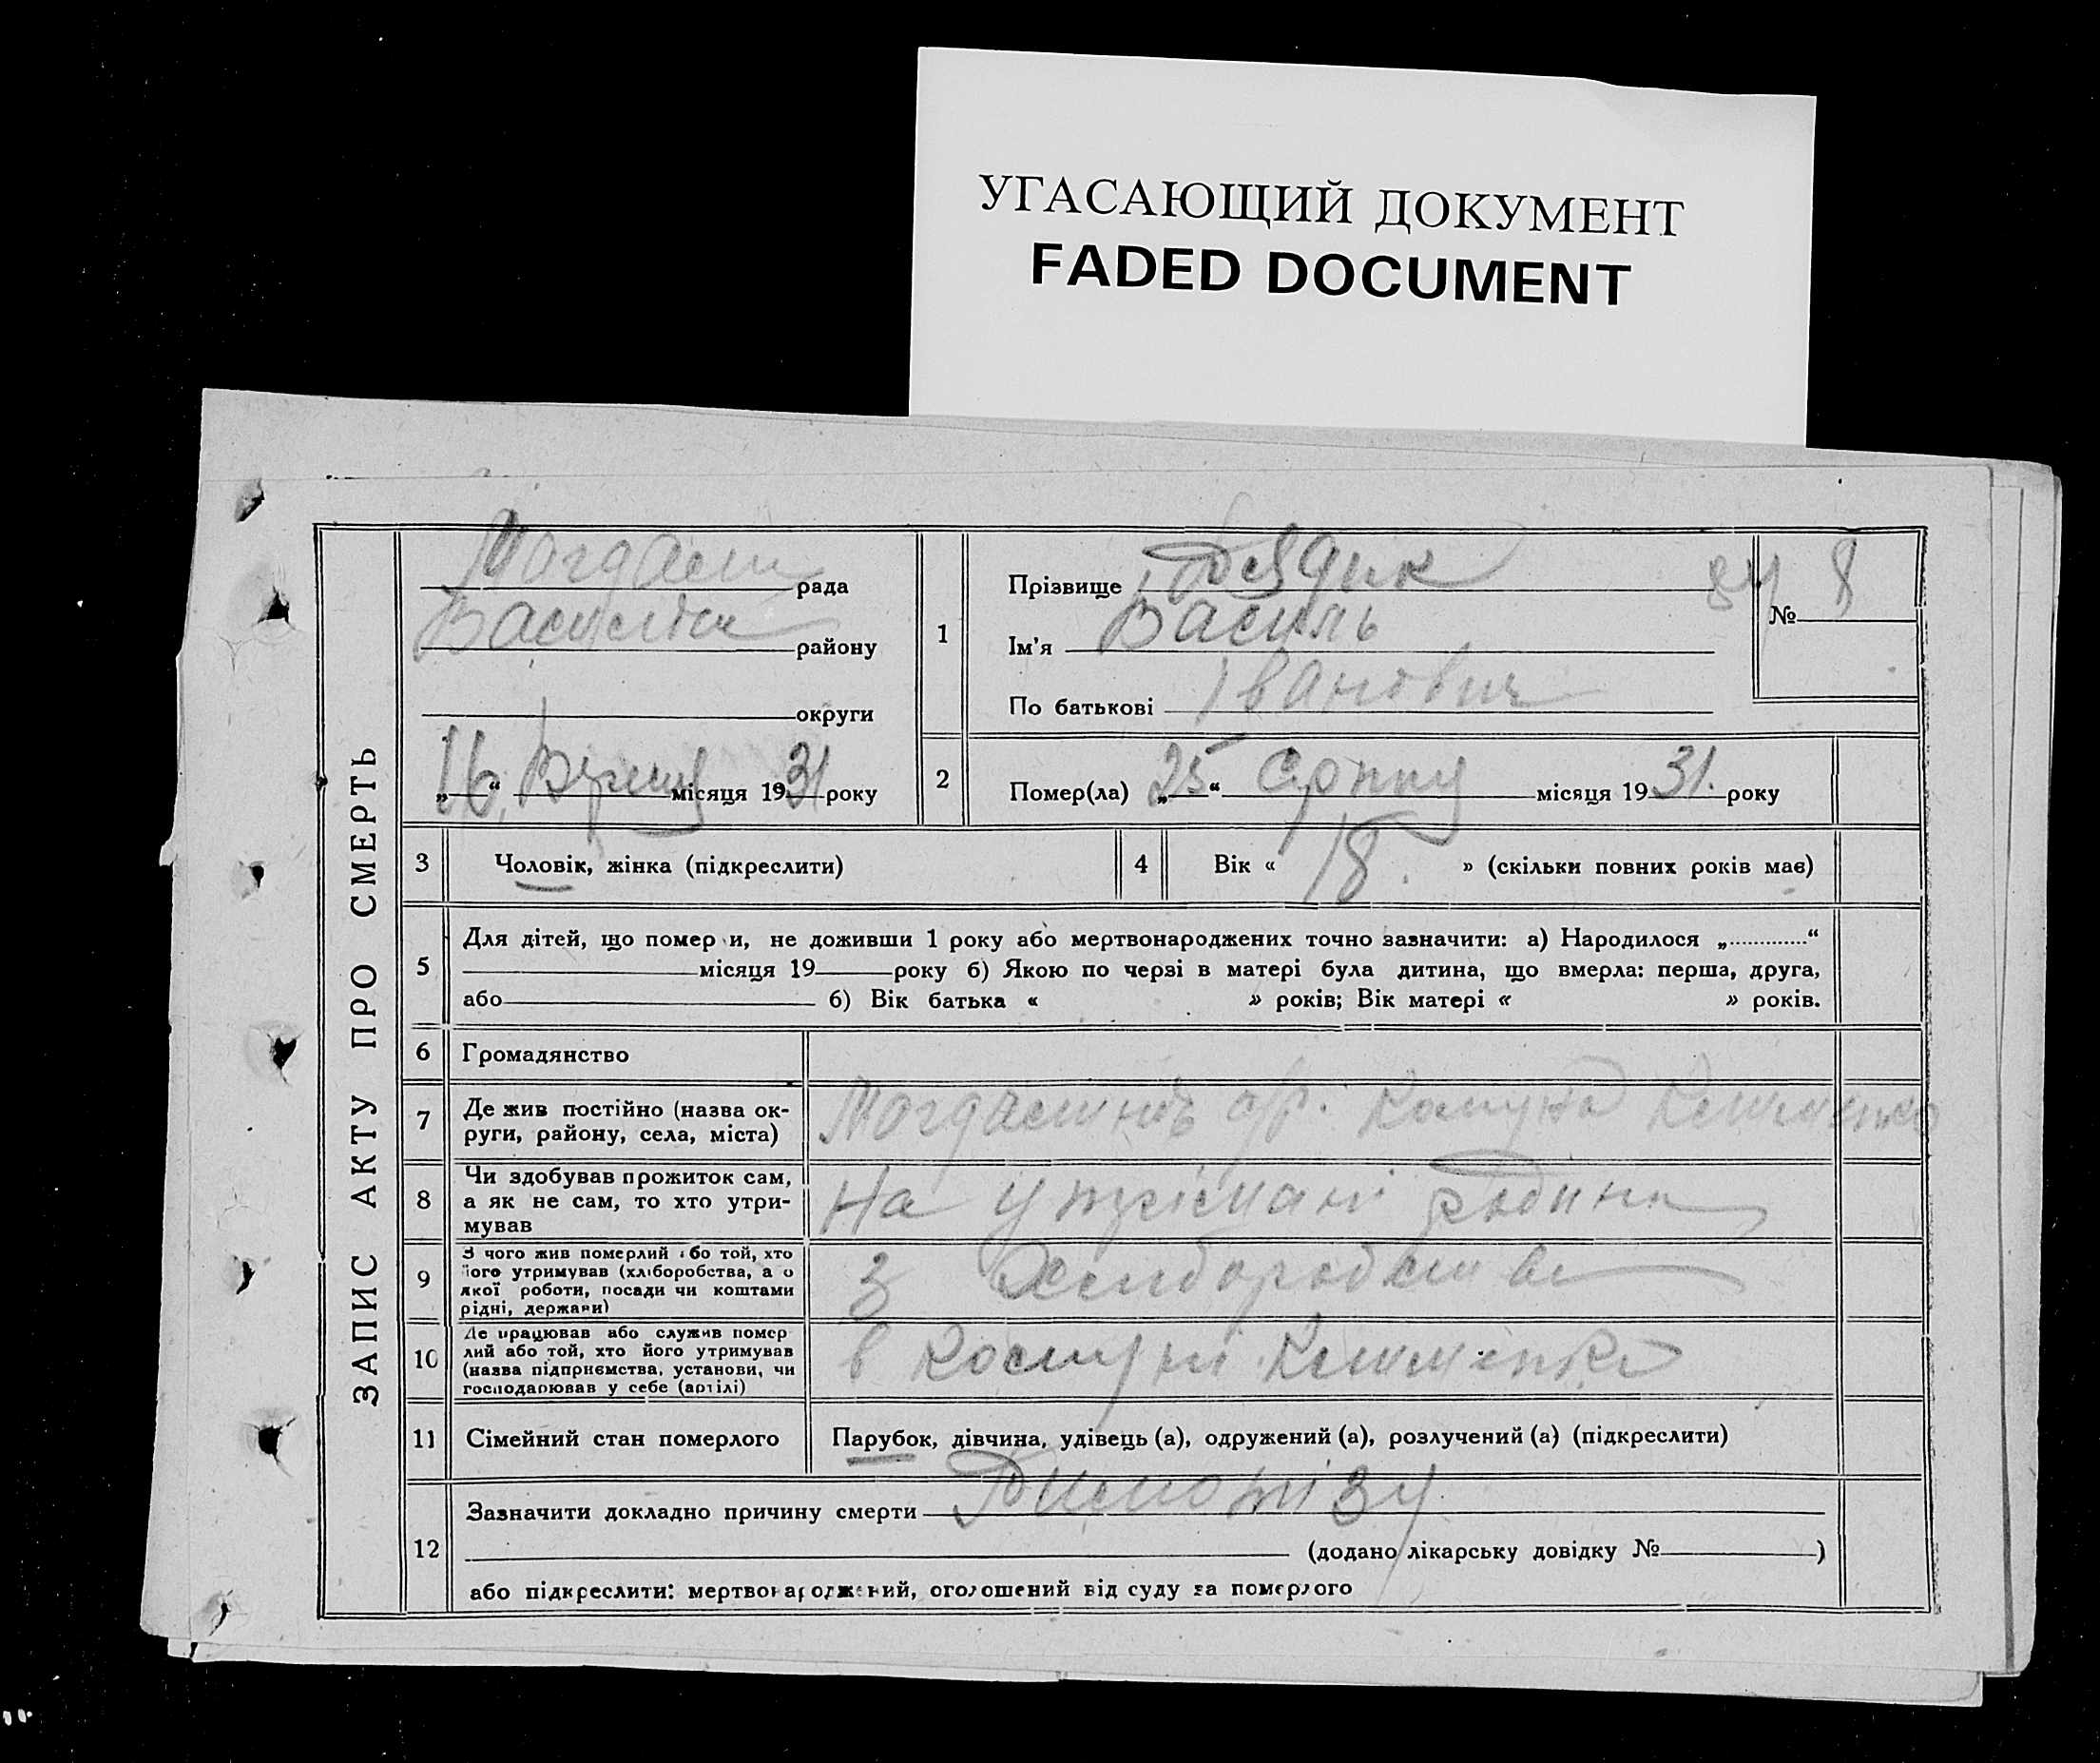 УГАСАЮЩИЙ ДОКУМЕНТ
FADED DOCUMENT
ЗАПИС АКТУ ПРО СМЕРТЬ
рада
району
округи
„16“ місяця 1931 року
1
Прізвище
Ім'я Василь
По батькові Іванович
№ 8
2
Помер(ла) „25“ Серпня місяця 1931. року
3
Чоловік, жінка (підкреслити)
4
Вік « 18. » (скільки повних років має)
5
Для дітей, що померли, не доживши 1 року або мертвонароджених точно зазначити: а) Народилося „.............“
місяця 19 року б) Якою по черзі в матері була дитина, що вмерла: перша, друга,
або б) Вік батька « » років; Вік матері « » років.
6
Громадянство
7
Де жив постійно (назва ок-
руги, району, села, міста)
Комуна
8
Чи здобував прожиток сам,
а як не сам, то хто утри-
мував
На
9
З чого жив померлий або той, хто
його утримував (хліборобства, а о
якої роботи, посади чи коштами
рідні, держави)
З
10
Де працював або служив помер
лий або той, хто його утримував
(назва підприємства, установи, чи
господарював у себе (артілі)
в комуні
11
Сімейний стан померлого
Парубок, дівчина, удівець (а), одружений (а), розлучений (а) (підкреслити)
12
Зазначити докладно причину смерти
(додано лікарську довідку № )
або підкреслити: мертвонароджений, оголошений від суду за померлого